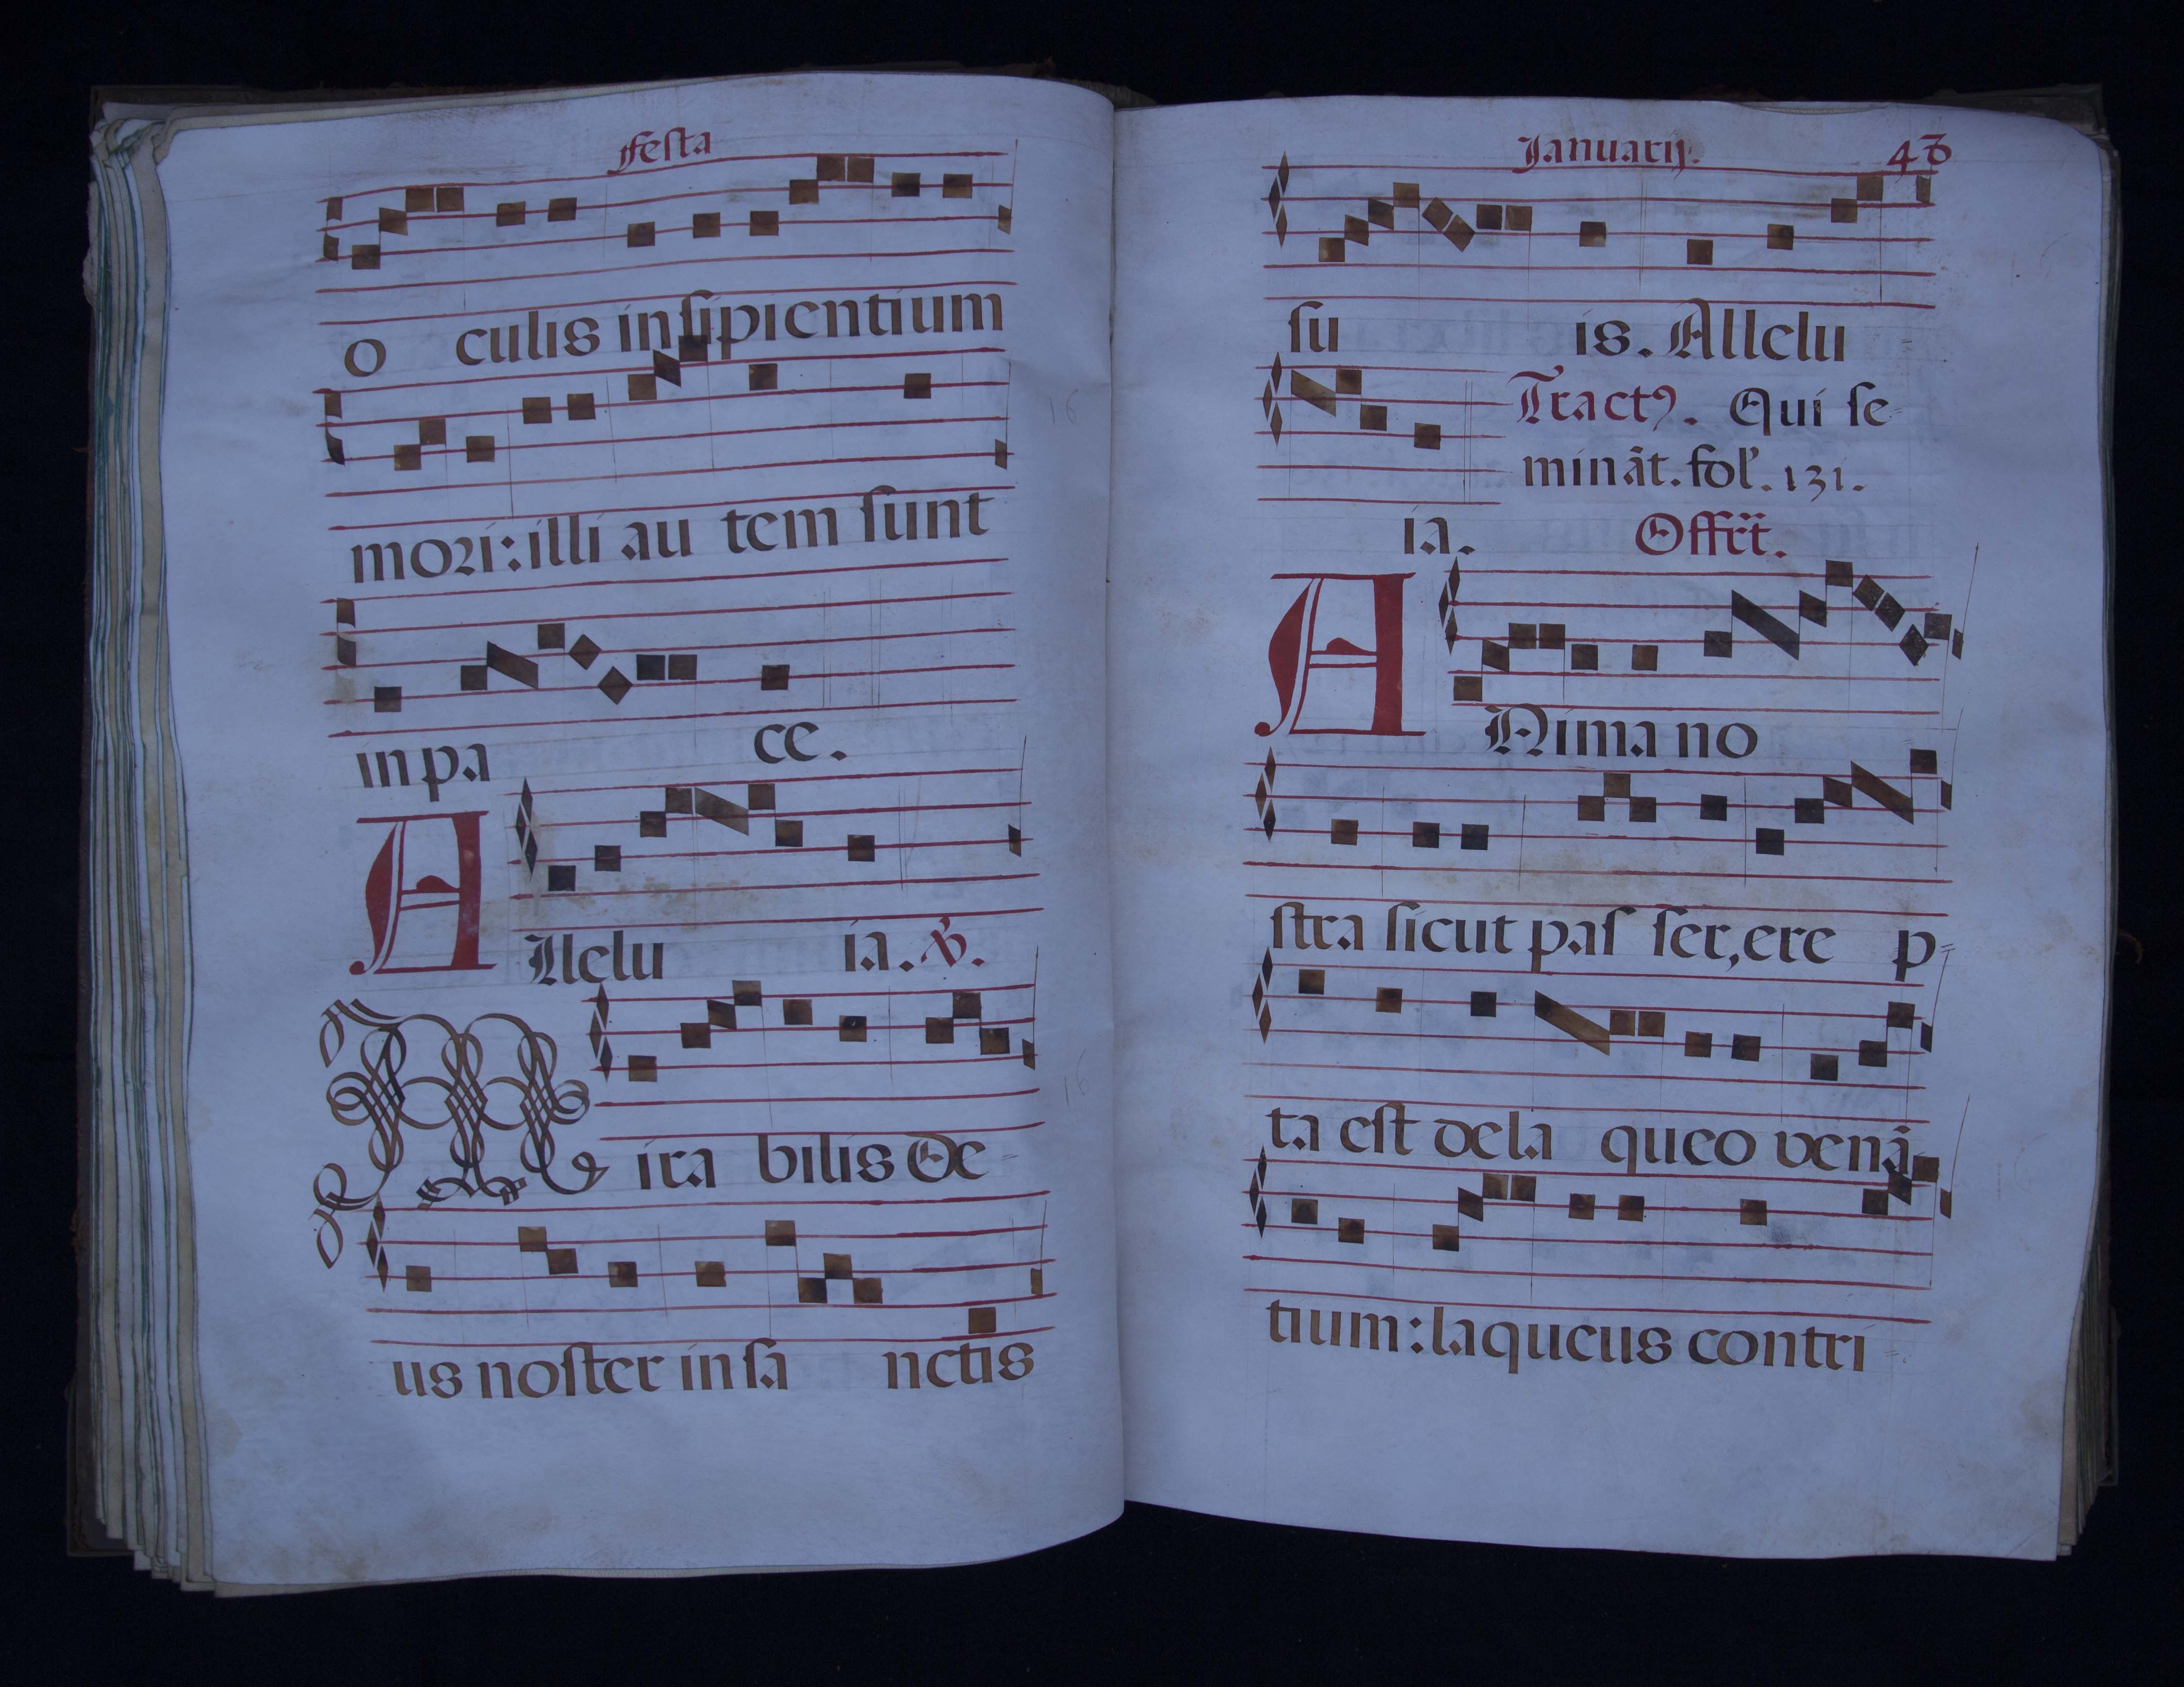 Festa
o culis insipientium
mori: illi au tem sunt
in pa ce.
Allelu ia. ℣.
Mira bilis De-
us noster in sa nctis
Januarij. 48
su is. Allelu
Tractꝰ. Qui se-
minãt. fol. 131.
ia. Offert.
ANima no
stra sicut pas ser, ere p=
ta est de la queo venã-
tium: laqueus contri-